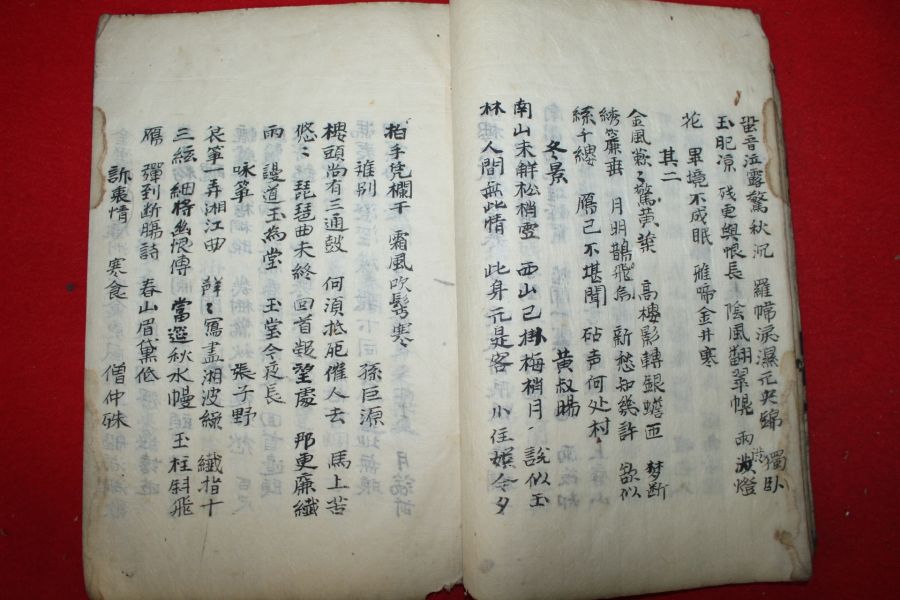 蛩音泣露驚秋沉 羅幃淚濕元央錦 獨臥
玉肥凉 残更與恨長 陰風翻翠幌 雨澁燈
花 畢境不成眠 雅啼金井寒
其二
金風蔌〻驚黃葉 高樓影轉銀蟾匝 梦断
綉簾垂 月明鵲飛 新愁知幾許 欲似
絲千縷 鴈已不堪聞 砧声何处村
冬景 黃叔暘
南山未解松梢雪 西山已掛梅梢月 說似玉
林 人間無此情 此身元是客 小住娯今夕
拍手凭欄干 霜風吹鬂寒
離別 孫巨源
樓頭尚有三通鼓 何須抵死催人去 馬上苦
悠〻 琵琶曲未終 回首望處 那更廉纖
雨 謾道玉為堂 玉堂今夜長
咏箏 張子野
哀箏一弄湘江曲 聲〻寫盡湘波綠 纖指十
三絃 細將幽恨傳 當筵秋水慢 玉柱斜飛
鴈 彈到断腸詩 春山眉黛低
訴衷情 寒食 僧仲硃